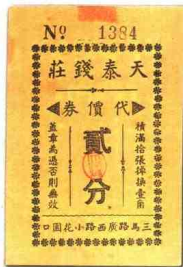 Nº 1384
天泰錢莊
代價券
積滿拾張掉換壹角
貳分
蓋章為憑否則無效
三馬路廣西路小花園口